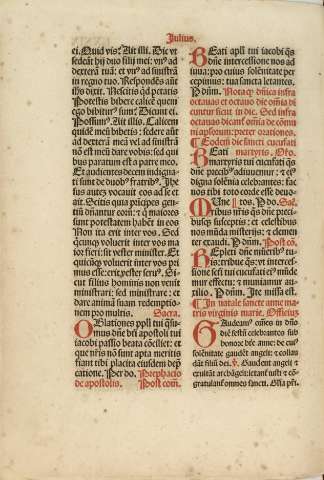 Julius.
ei. Quid vis? Ait illi. Dic vt
sedeāt hij duo filij mei: vnꝰ ad
dexterā tuā: et vnꝰ ad sinistrā
in regno tuo. Respondēs aūt
iħs dixit. Nescitis qd petatis
Potestis bibere calicē quem
ego bibiturꝰ sum? Dicunt ei.
Possumꝰ. Ait illis. Calicem
quidē meū bibetis: sedere aūt
ad dexterā meā vel ad sinistrā
nō est meū dare vobis: sed qui
bus paratum est a patre meo.
Et audientes decem indigna-
ti sunt de duobꝰ fratribꝰ. Ihe
sus autez vocauit eos ad se et
ait. Scitis quia prīcipes gen-
tiū dn̄antur eorū: et q̄ maiores
sunt potestatem habēt in eos
Non ita erit inter vos. Sed
q̄cunqꝫ voluerit inter vos ma
ior fieri: sit vester minister. Et
quicūqꝫ voluerit inter vos pri
mus esse: erit vester seruꝰ. Si-
cut filius hominis non venit
ministrari: sed ministrare: et
dare animā suam redemptio-
nem pro multis. Sacra.
OBlationes ppl̄i tui q̄sumꝰ
dn̄e btī apostoli tui
iacobi passio beata cōciliet: et
que nr̄is nō sunt apta meritis
fiant tibi placita eiusdem dep̄
catione. Per do. Prephacio
de apostolis. Postcōm̄.
BEati apl̄i tui iacobi q̄s
dn̄e intercessione nos ad
iuua: pro cuius solēnitate per
cepimus: tua sancta letantes.
P dn̄m. Nota qꝫ dn̄ica infra
octauas et octauo die om̄ia di
cuntur sicut in die. Sed infra
octauas dicat̄ om̄ia de cōmū
ni apostolorum: preter orationes.
Eodē die sancti cucufati
BEati martyris. Oro.
martyris tui cucufati q̄s
dn̄e precibꝰ adiuuemur: et ei
digna solēnia celebrantes: fac
nos tibi toto corde esse deuo-
tos. P do. Sac̄.
MUneribus nr̄is q̄s dn̄e preci-
busqꝫ susceptis: et celestibus
nos mūda misterijs: et clemen
ter exaudi. P dn̄m. Post cō.
REpleti dn̄e muneribꝰ
q̄s: vt interces-
sione sc̄i tui cucufati ei mūde
mur effectu: et muniamur au-
xilio. P dn̄m. Ite missa est.
In natale sancte anne ma
tris virginis marie. Officiuꝫ
GAudeamꝰ oēs in dn̄o
diē festū celebrantes sub
honore btē anne: de cuiꝰ
solēnitate gaudēt angeli: et collau
dāt filiū dei. v̄. Gaudent angeli et
exultāt archāgeli: letant̄ iusti et cō
gratulant̄ omnes sancti. Glīa pr̄i.